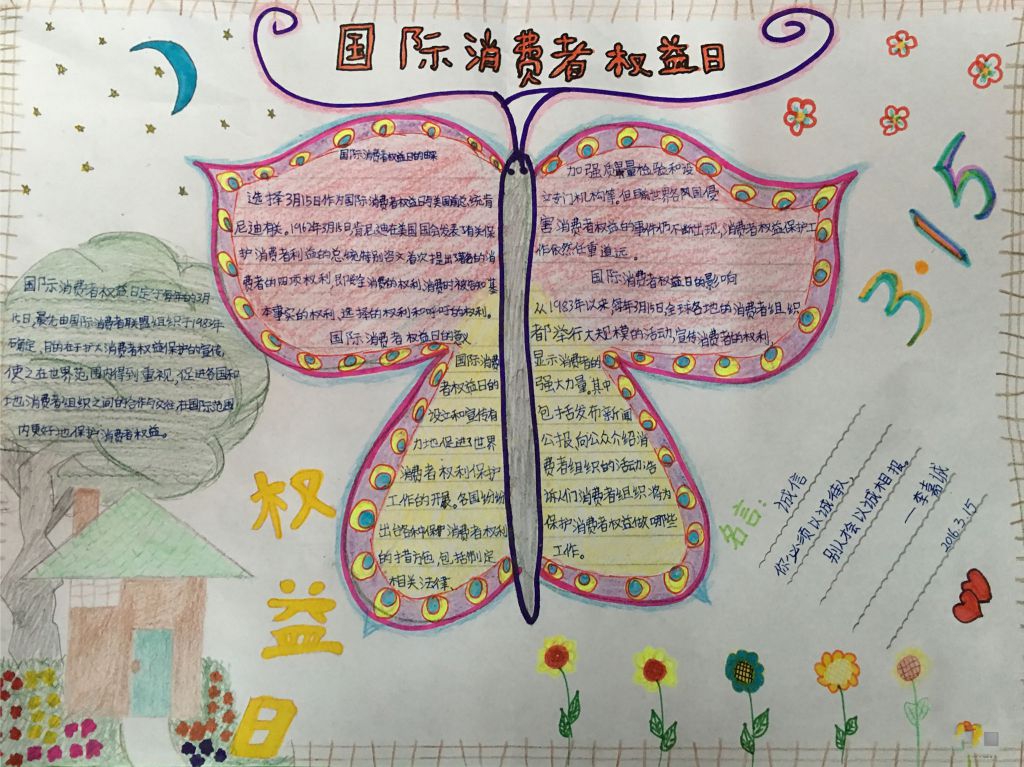 国际消费者权益日
国际消费者权益日定于每年的3月
15日,最先由国际消费者联盟组织于1983年
确定,目的在于扩大消费者权益保护的宣传,
使之在世界范围内得到重视,促进各国和
地消费者组织之间的合作与交往,在国际范围
内更好地保护消费者权益。
国际消费者权益日的由来
选择3月15日作为国际消费者权益日与美国前总统肯
尼迪有关。1962年3月15日肯尼迪在美国国会发表有关保
护消费者利益的总统特别咨文首次提出著名的消
费者的四项权利,即安全消费的权利,消费时被告知基
本事实的权利,选择的权利和呼吁的权利。
国际消费者权益日的
国际消费
者权益日的
设立和宣传有
力地促进了世界
消费者权利保护
工作的开展。各国纷纷
出台各种保护消费者权利
的措施,包括制定
相关法律、
加强质量检验和设
立专门机构等。但目前世界各国侵
害消费者权益的事件仍不断出现,消费者权益保护工
作依然任重道远。
国际消费者权益日的影响
从1983年以来,每年3月15日,全球各地的消费者组织
都举行大规模的活动,宣传消费者的权利,
显示消费者的
强大力量。其中
包括发布新闻
公报,向公众介绍消
费者组织的活动,告
诉人们消费者组织将为
保护消费者权益做哪些
工作。
3·15
名言:
诚信
你必须以诚待人,
别人才会以诚相报。
—李嘉诚
2016.3.15
权
益
日